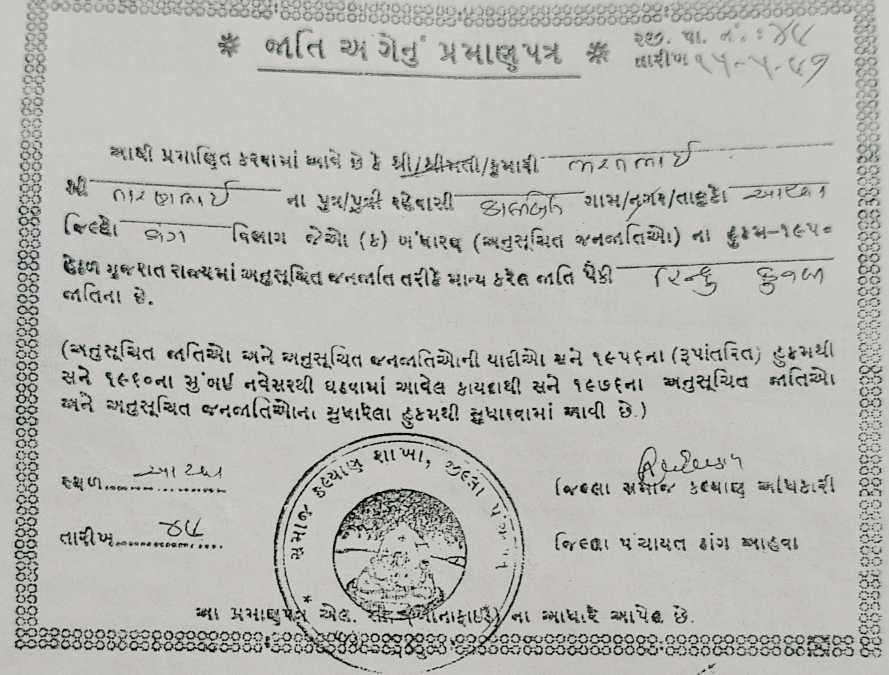 * જાતિ અંગેનું પ્રમાણપત્ર *
રજી. પા. નં. : ૪૮
તારીખ ૧૫-૫-૮૧
આથી પ્રમાણિત કરવામાં આવે છે કે શ્રી/શ્રીમતી/કુમારી ભરતભાઈ
શ્રી ના પુત્ર/પુત્રી રહેવાસી ગામ/નગર/તાલુકો આહવા
જિલ્લો ડાંગ વિભાગ જેઓ (ક) બંધારણ (અનુસૂચિત જનજાતિઓ) ના હુકમ-૧૯૫૦
હેઠળ ગુજરાત રાજ્યમાં અનુસૂચિત જનજાતિ તરીકે માન્ય કરેલ જાતિ પૈકી હિન્દુ કુનબી
જાતિના છે.
(અનુસૂચિત જાતિઓ અને અનુસૂચિત જનજાતિઓની યાદીઓ સને ૧૯૫૬ના (રૂપાંતરિત) હુકમથી
સને ૧૯૬૦ના મુંબઈ નવેસરથી ઘડવામાં આવેલ કાયદાથી સને ૧૯૭૬ના અનુસૂચિત જાતિઓ
અને અનુસૂચિત જનજાતિઓના સુધારેલા હુકમથી સુધારવામાં આવી છે.)
સમાજ કલ્યાણ શાખા, જીલ્લા પંચાયત
સ્થળ આહવા
જિલ્લા સમાજ કલ્યાણ અધિકારી
તારીખ
જિલ્લા પંચાયત ડાંગ આહવા
આ પ્રમાણપત્ર એલ. (બોનાફાઈડ) ના આધારે આપેલ છે.